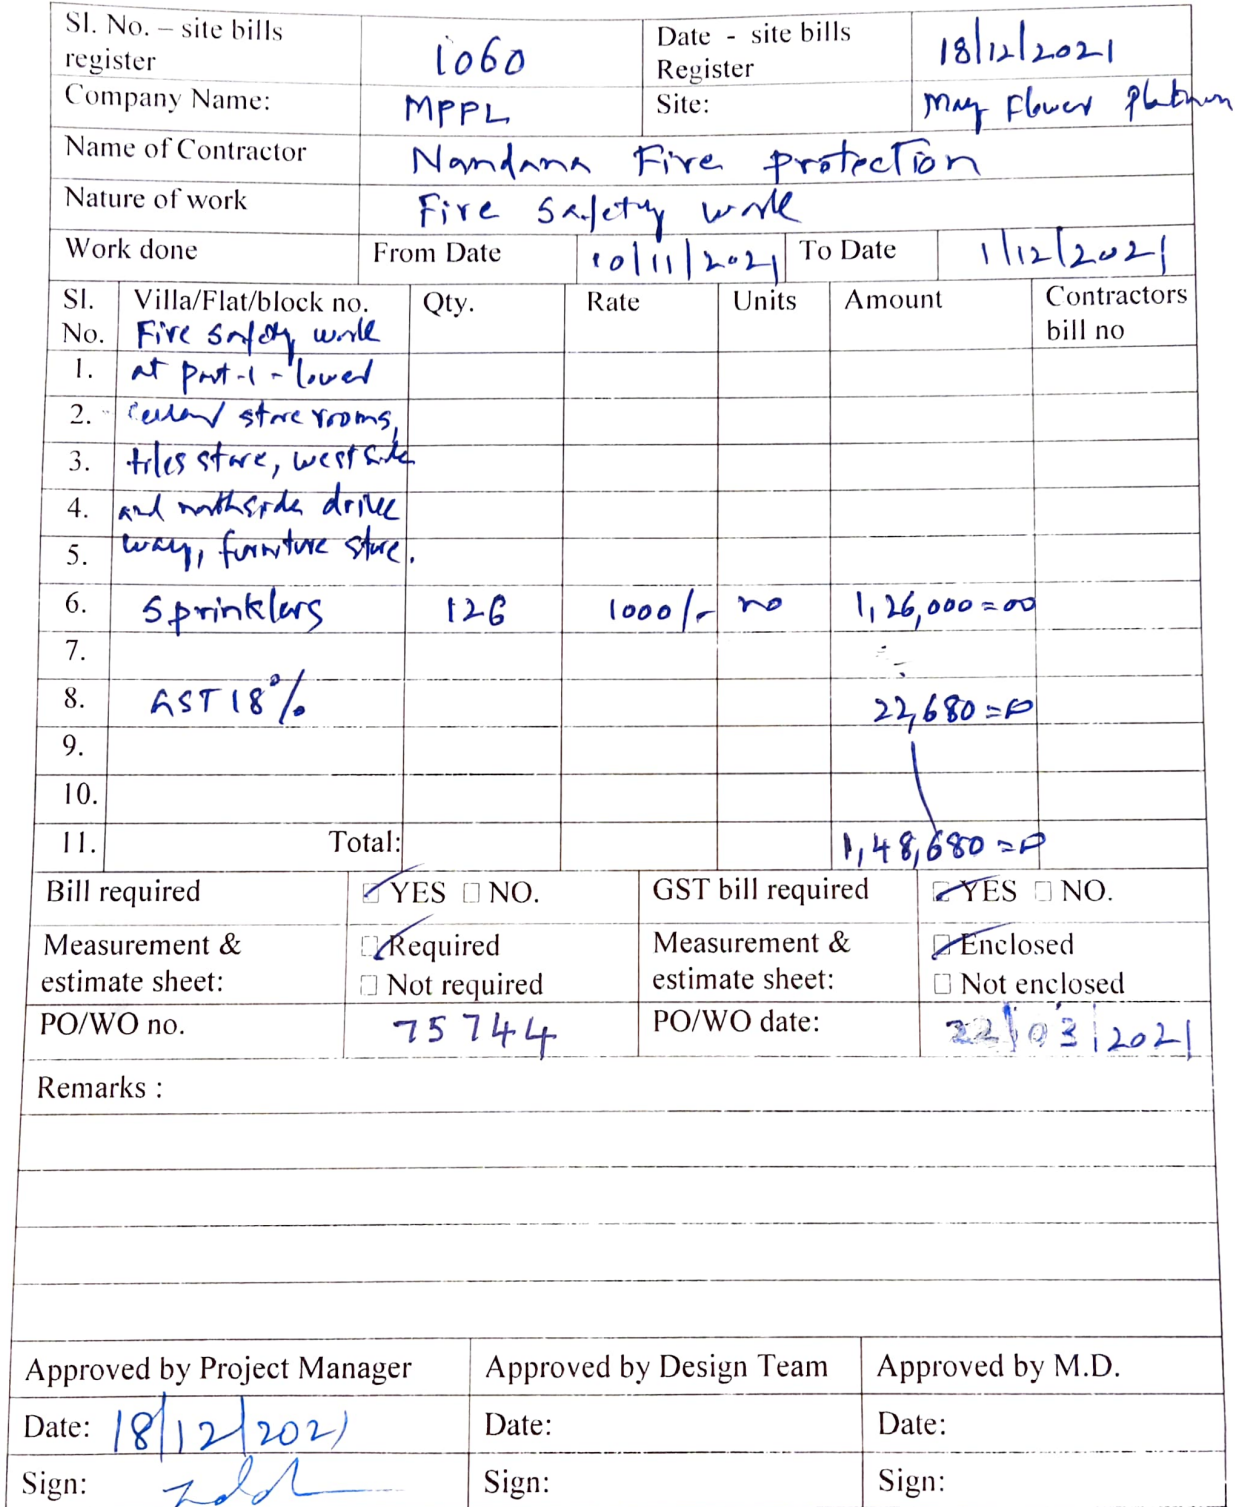 Sl. No. – site bills register 1060 Date - site bills Register 18/12/2021
Company Name: MPPL Site: May Flower Platinum
Name of Contractor Nandana Fire protection
Nature of work Fire Safety work
Work done From Date 10/11/2021 To Date 1/12/2021
Sl. No. Villa/Flat/block no. Qty. Rate Units Amount Contractors bill no
Fire Safety work
1. at part-1 - lower
2. cellar store rooms,
3. tiles store, west side
4. and northside drive
5. way, furniture store.
6. Sprinklers 126 1000/- no 1,26,000=00
7.
8. GST 18% 22,680=00
9.
10.
11. Total: 1,48,680=00
Bill required YES NO. GST bill required YES NO.
Measurement & estimate sheet: Required Not required Measurement & estimate sheet: Enclosed Not enclosed
PO/WO no. 75744 PO/WO date: 22/03/2021
Remarks :
Approved by Project Manager Approved by Design Team Approved by M.D.
Date: 18/12/2021 Date: Date:
Sign: Sign: Sign: